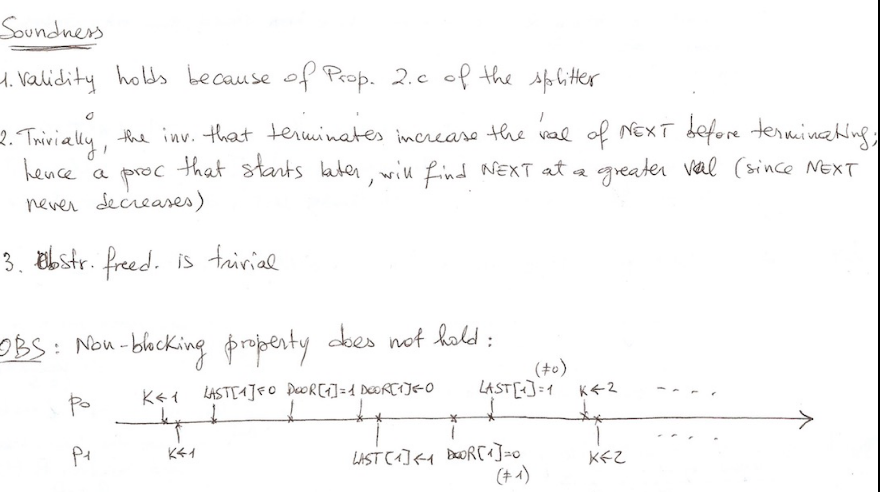 Soundness
1. Validity holds because of Prop. 2.c of the splitter
2. Trivially, the inv. that terminates increase the val of NEXT before terminating;
hence a proc that starts later, will find NEXT at a greater val (since NEXT
never decreases)
3. Obstr. freed. is trivial
OBS: Non-blocking property does not hold:
(≠0)
P0 K←1 LAST[1]←0 DOOR[1]=1 DOOR[1]←0 LAST[1]=1 K←2 ----.
P1 K←1 LAST[1]←1 DOOR[1]=0 K←2 ----.
(≠1)